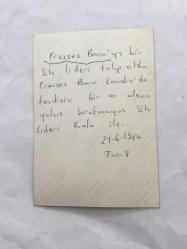 Prenses Banu'ya bir
Sih lideri talip oldu
Prenses Banu Londra'da
kendisini bir an olsun
yalnız bırakmayan Sih
lideri Kalu ile.
21-6-1984